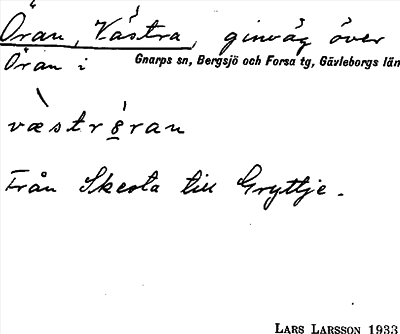 Öran, Västra, ginväg över
Öran i Gnarps sn, Bergsjö och Forsa tg, Gävleborgs län
væ̀strǿran
Från Skesta till Gryttje.
LARS LARSSON 1933